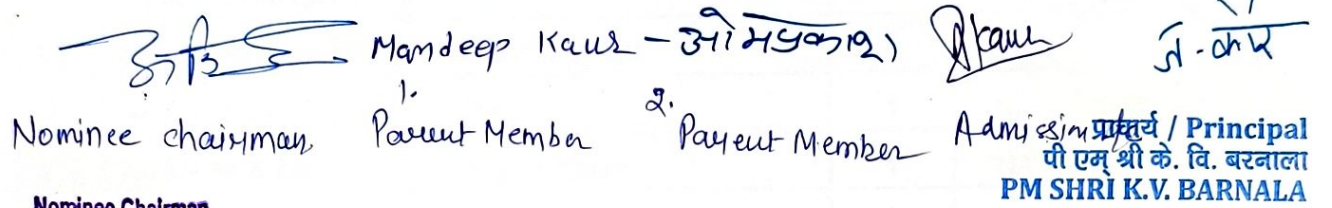 Mandeep Kaur - ओमप्रकाश
1.
2.
Nominee chairman Parent Member Payent Member Admission प्राचार्य / Principal
पी एम् श्री के. वि. बरनाला
PM SHRI K.V. BARNALA
Nominee Chairman